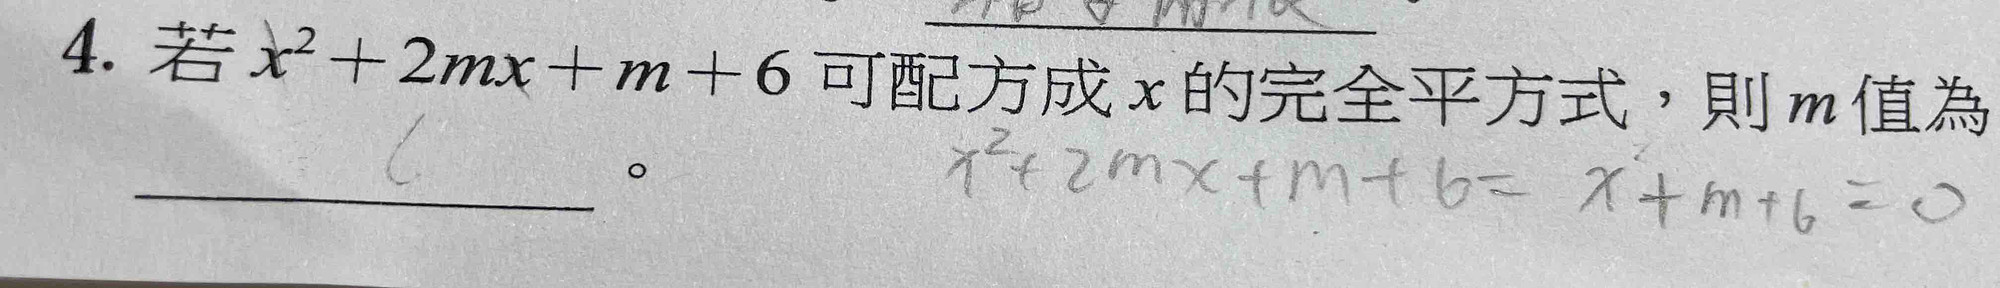 4. 若 x² + 2mx + m + 6 可配方成 x 的完全平方式，則 m 值為
。
x² + 2mx + m + 6 = x² + m + 6 = 0